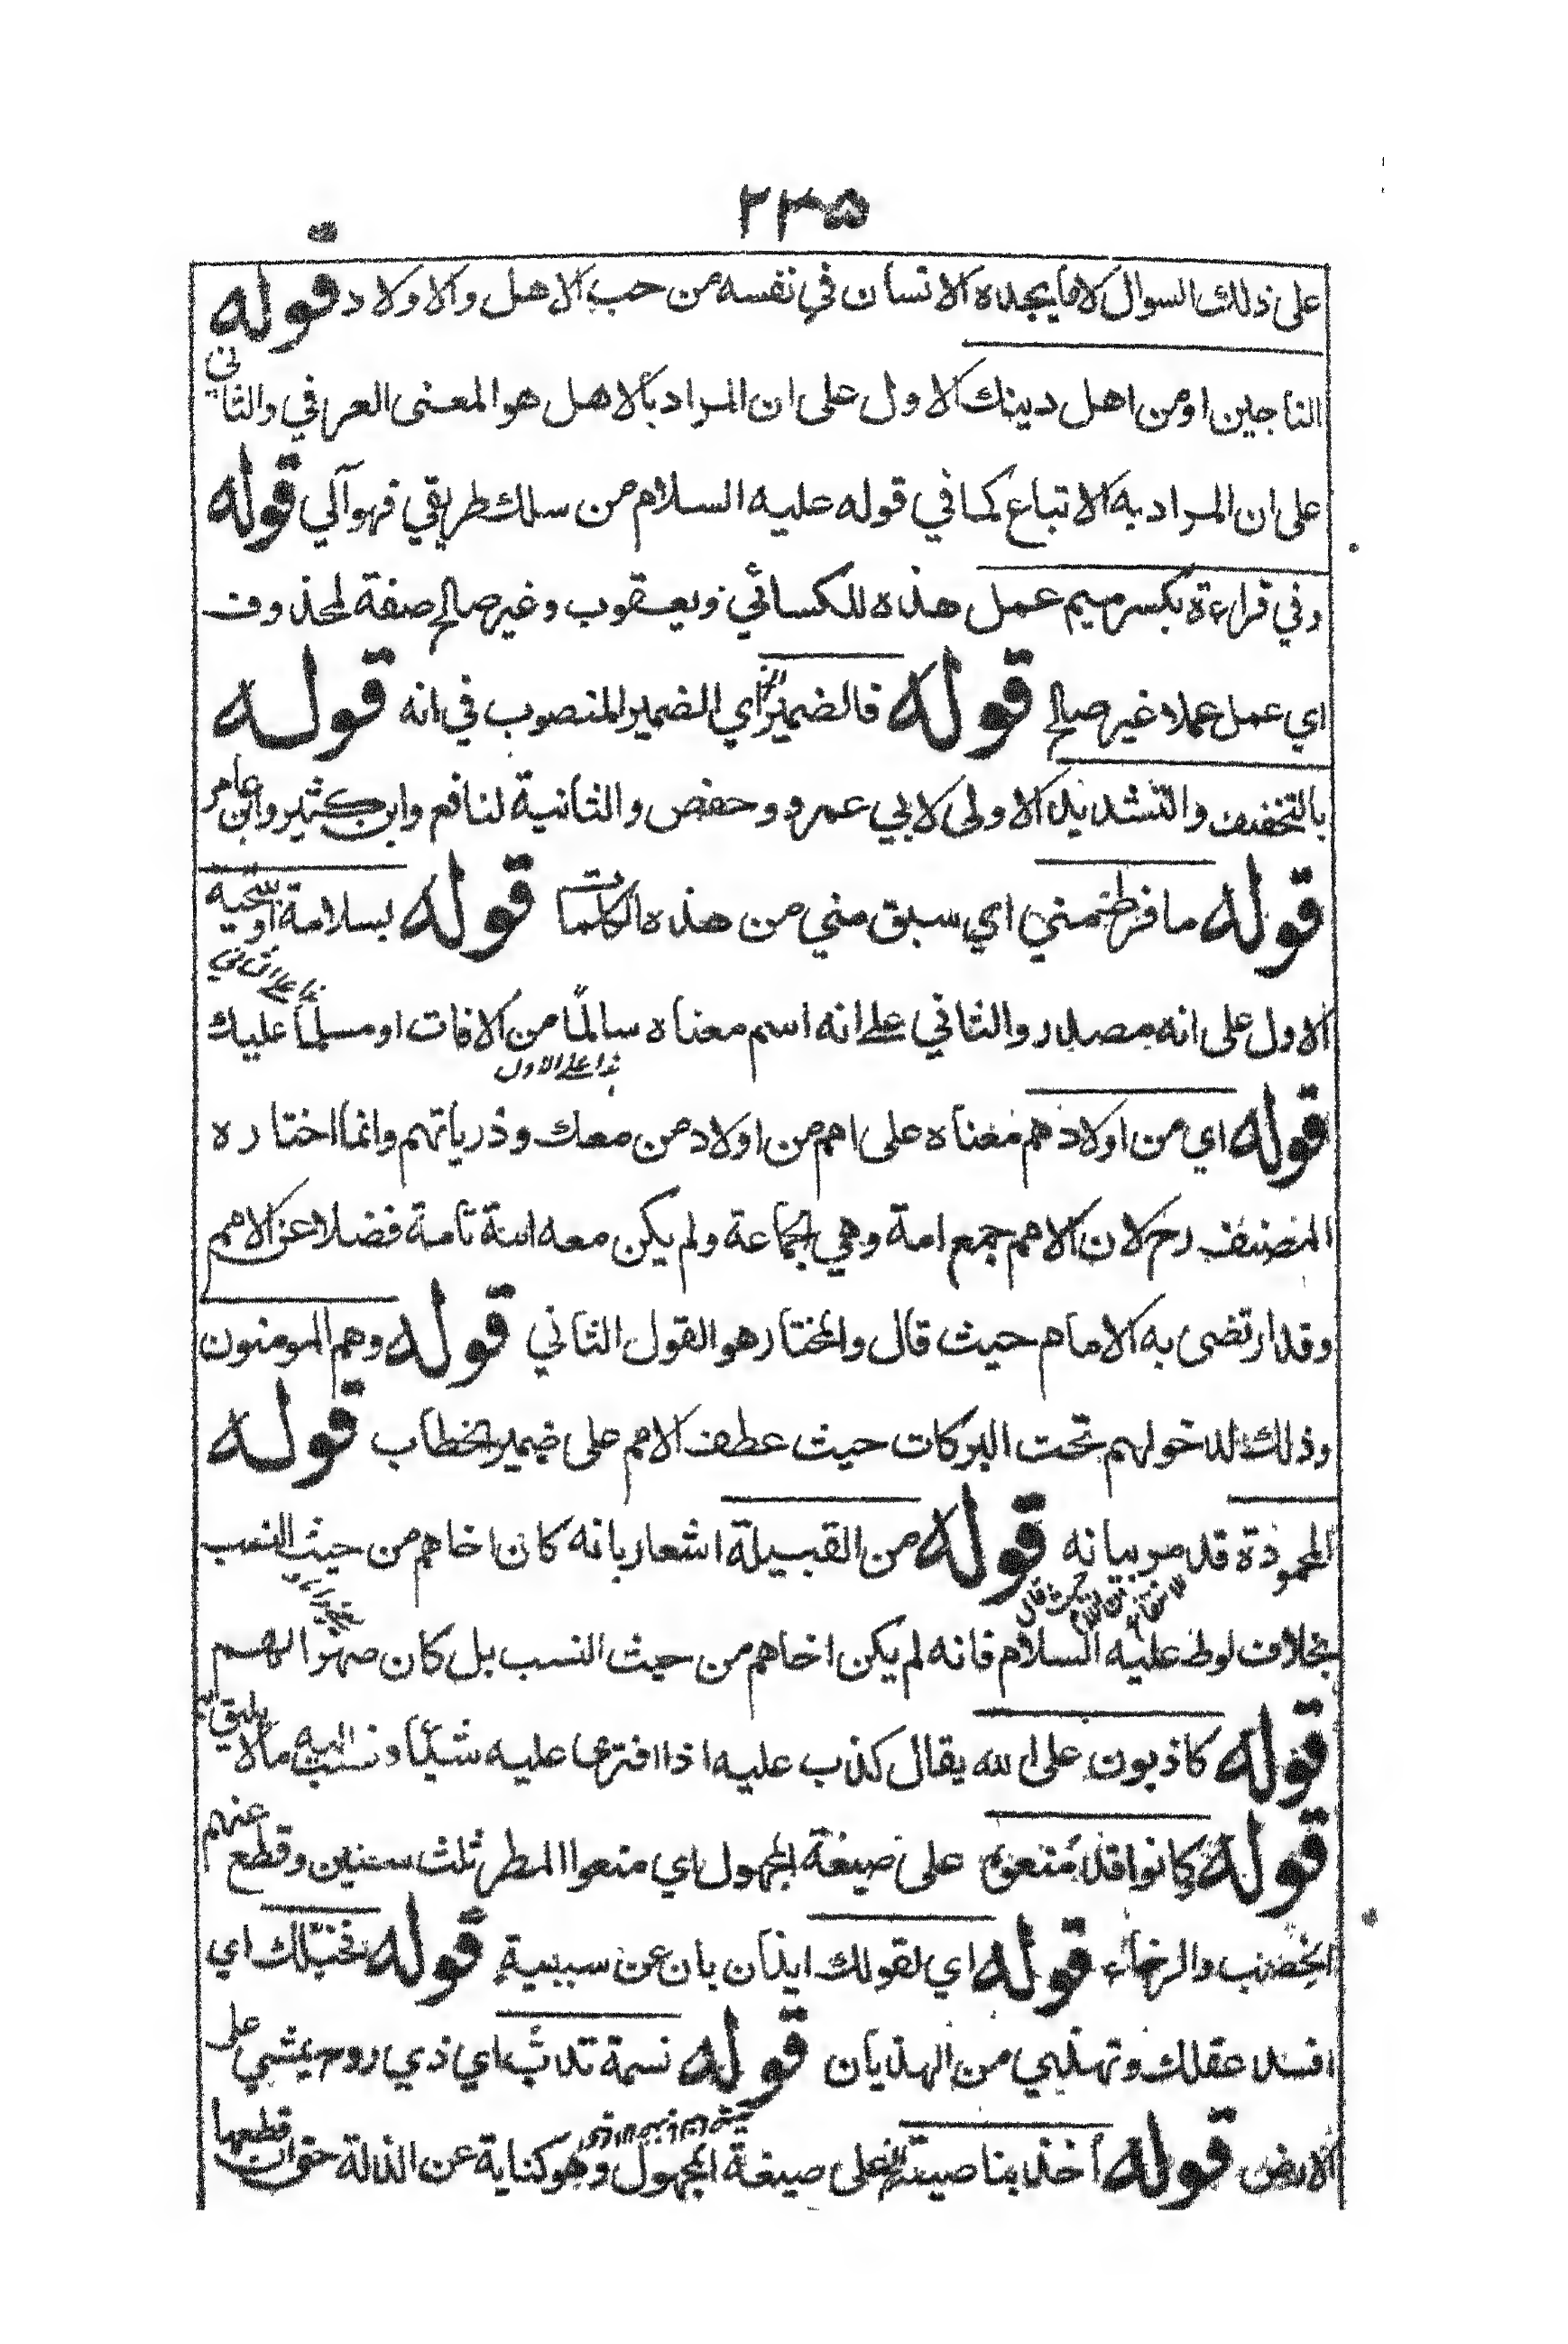 ۲۳۵
على ذلك السوال لا ما يجده الانسان في نفسه من حب الاهل والاولاد قوله
الناجين او من اهل دينك الاول على ان المراد بالاهل هو المعنى العرفي والثاني
على ان المراد به الاتباع كما في قوله عليه السلام من سلك طريقي فهو آلي قوله
وفي قراءة بكسر ميم عمل هذه للكسائي ويعقوب وغير صالح صفة لمحذوف
اي عمل عملا غير صالح قوله فالضمير الخ اي الضمير المنصوب في انه قوله
بالتخفيف والتشديد الاولى لابي عمرو وحفص والثانية لنافع وابن كثير وابن عامر
قوله ما فرط مني اي سبق مني من هذه الكلمات قوله بسلامة او بتحية
الاول على انه مصدر والثاني على انه اسم معناه سالما من الافات او مسلما عليك
هذا على الاول
قوله اي من اولادهم معناه على امم من اولاد من معك وذرياتهم وانما اختاره
المصنف رح لان الامم جمع امة وهي الجماعة ولم يكن معه امة تامة فضلا عن الامم
وقد ارتضى به الامام حيث قال والمختار هو القول الثاني قوله وهم المومنون
وذلك لدخولهم تحت البركات حيث عطف الامم على ضمير الخطاب قوله
المحمودة قد مر بيانه قوله من القبيلة اشعار بانه كان اخاهم من حيث النسب
بخلاف لوط عليه السلام فانه لم يكن اخاهم من حيث النسب بل كان صهرا لهم
قوله كاذبون على الله يقال كذب عليه اذا افترى عليه شيئا ونسب اليه ما لا يليق به
قوله كانوا قد منعوا على صيغة المجهول اي منعوا المطر ثلث سنين وقطع عنهم
الخصب والرخاء قوله اي لقولك ايذان بان عن سببية قوله فخبلك اي
افسد عقلك وتهذي من الهذيان قوله نسمة تدب اي ذي روح يمشي على
الارض قوله أخذ بناصيته الخ على صيغة المجهول وهو كناية عن الذلة حق ان قطعها